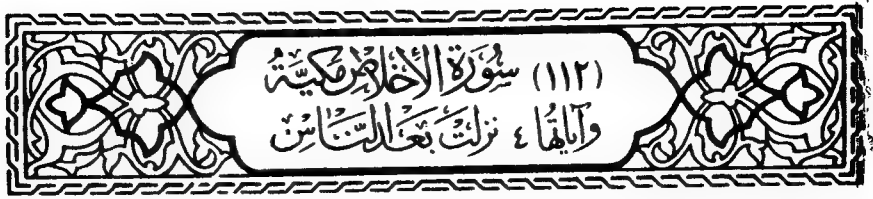 (١١٢) سُورَة الأخلاص مكيَّة
وآياتها ٤ نزلت بَعد النَّاسِ